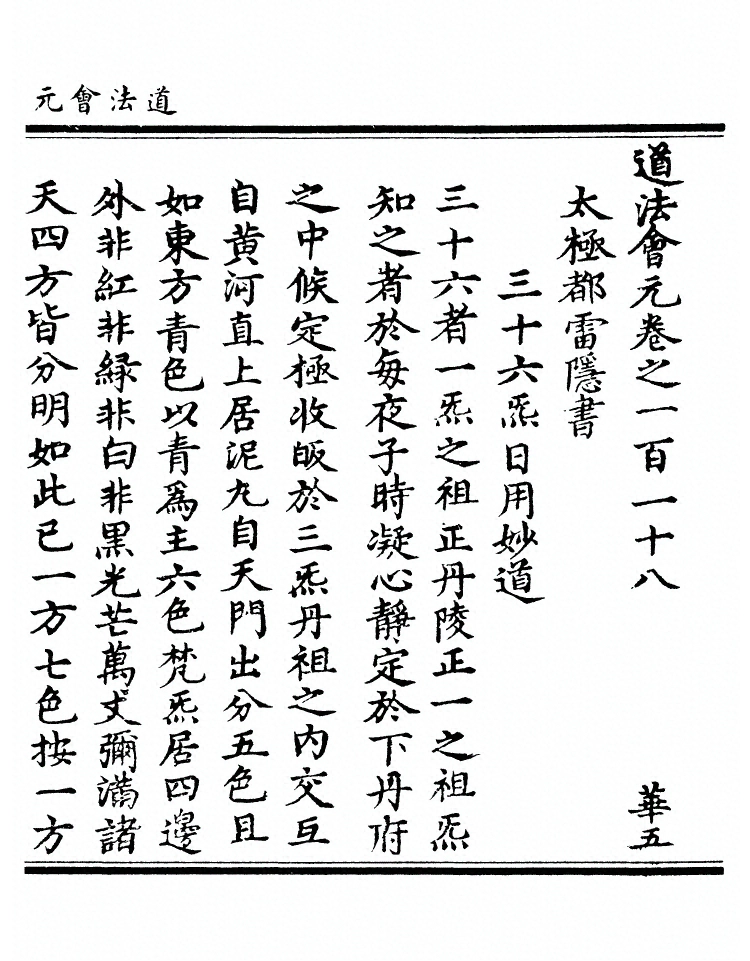 道法會元
道法會元卷之一百一十八 華五
太極都雷隱書
三十六炁日用妙道
三十六者一炁之祖正丹陵正一之祖炁
知之者於每夜子時凝心靜定於下丹府
之中候定極收皈於三炁丹祖之内交互
自黄河直上居泥丸自天門出分五色且
如東方青色以青為主六色梵炁居四邊
外非紅非緑非白非黒光芒萬丈彌滿諸
天四方皆分明如此已一方七色按一方